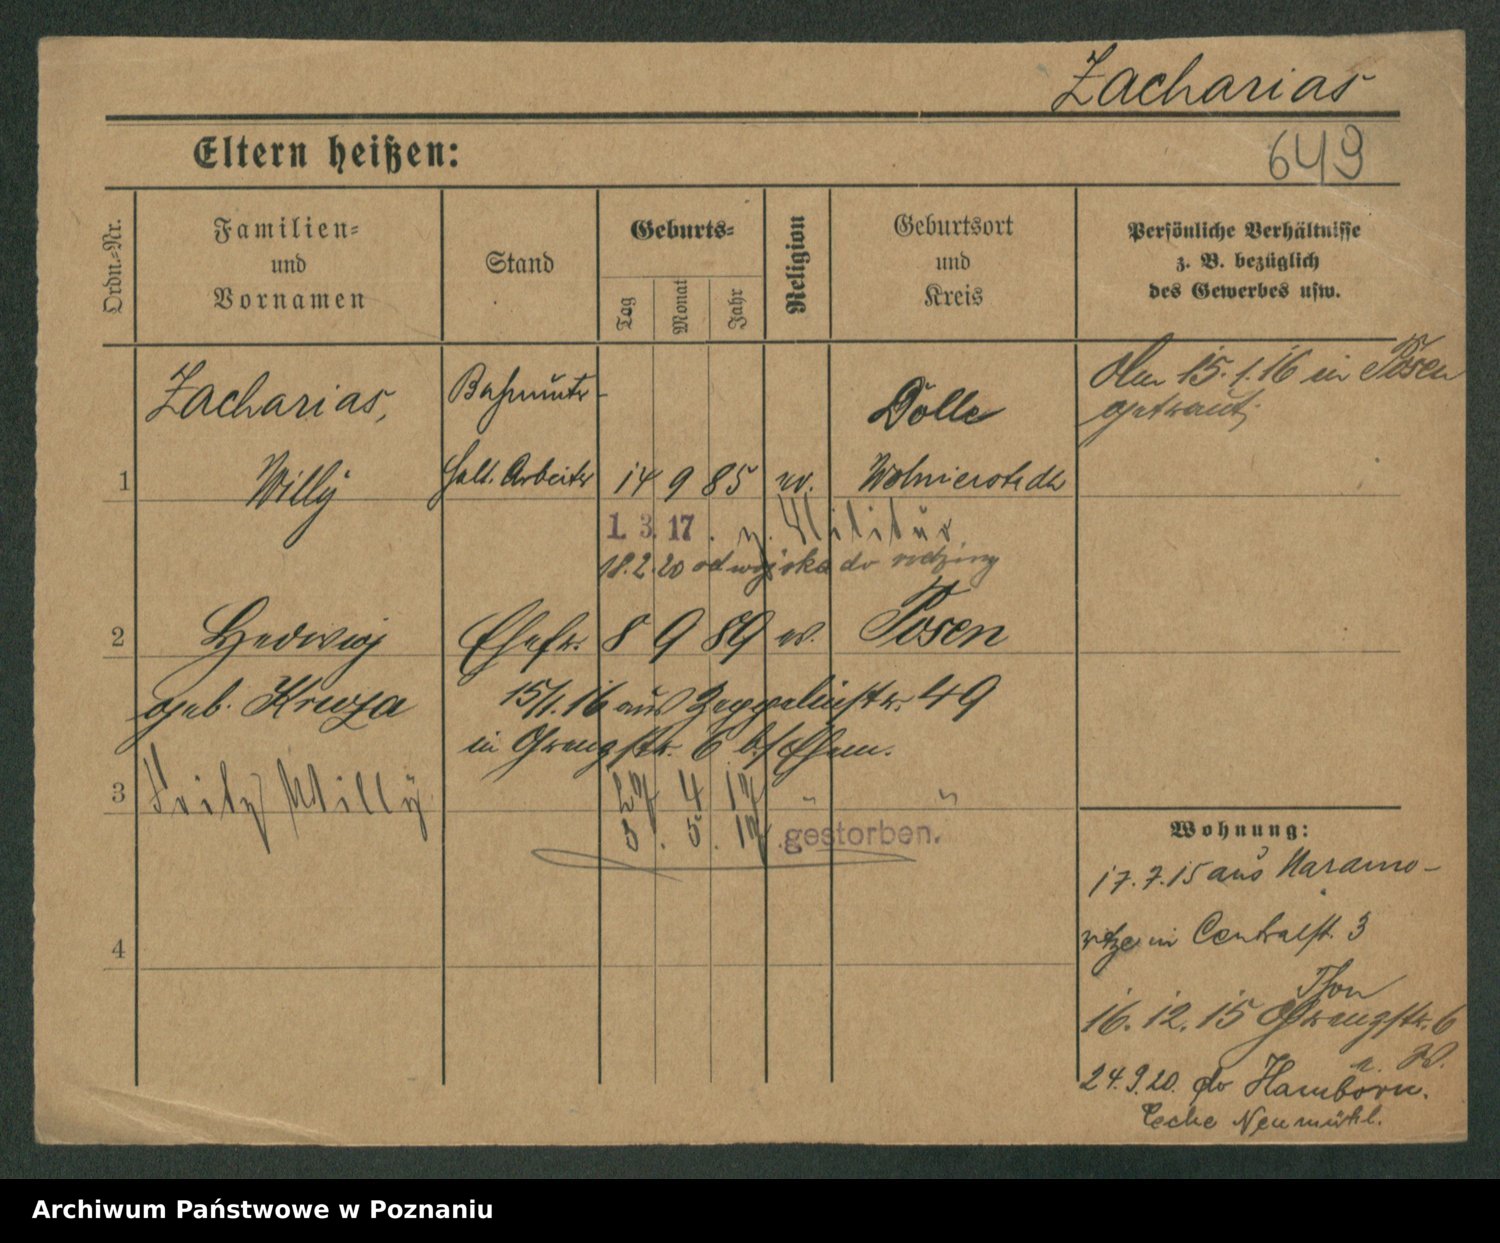 Zacharias
Eltern heißen:
649
Ordn.=Nr.
Familien=
und
Vornamen
Stand
Geburts=
Tag
Monat
Jahr
Religion
Geburtsort
und
Kreis
Persönliche Verhältnisse
z. B. bezüglich
des Gewerbes usw.
Zacharias,
Bahnunter-
Dölle
Am 15.1.16 in Posen
getraut.
1
Willÿ
halt. Arbeiter
14 9 85 ev.
Wolmierstedt
1. 3. 17. z. Militär
18.2.20 od wojska do rodziny
2
Hedwig
Ehefr.
8 9 89 ev.
Posen
geb. Kreuza
15/1.16 aus Zeppelinstr. 49
in Grenzstr. 6 b/ Ehem.
3
Fritz Willÿ
27 4 17 " "
3. 5. 17 gestorben.
Wohnung:
17.7.15 aus Naramo-
witze in Centralst. 3
4
16.12.15 Grenzstr. 6
24.9.20. do Hamborn.
Zeche Neumühl.
Archiwum Państwowe w Poznaniu